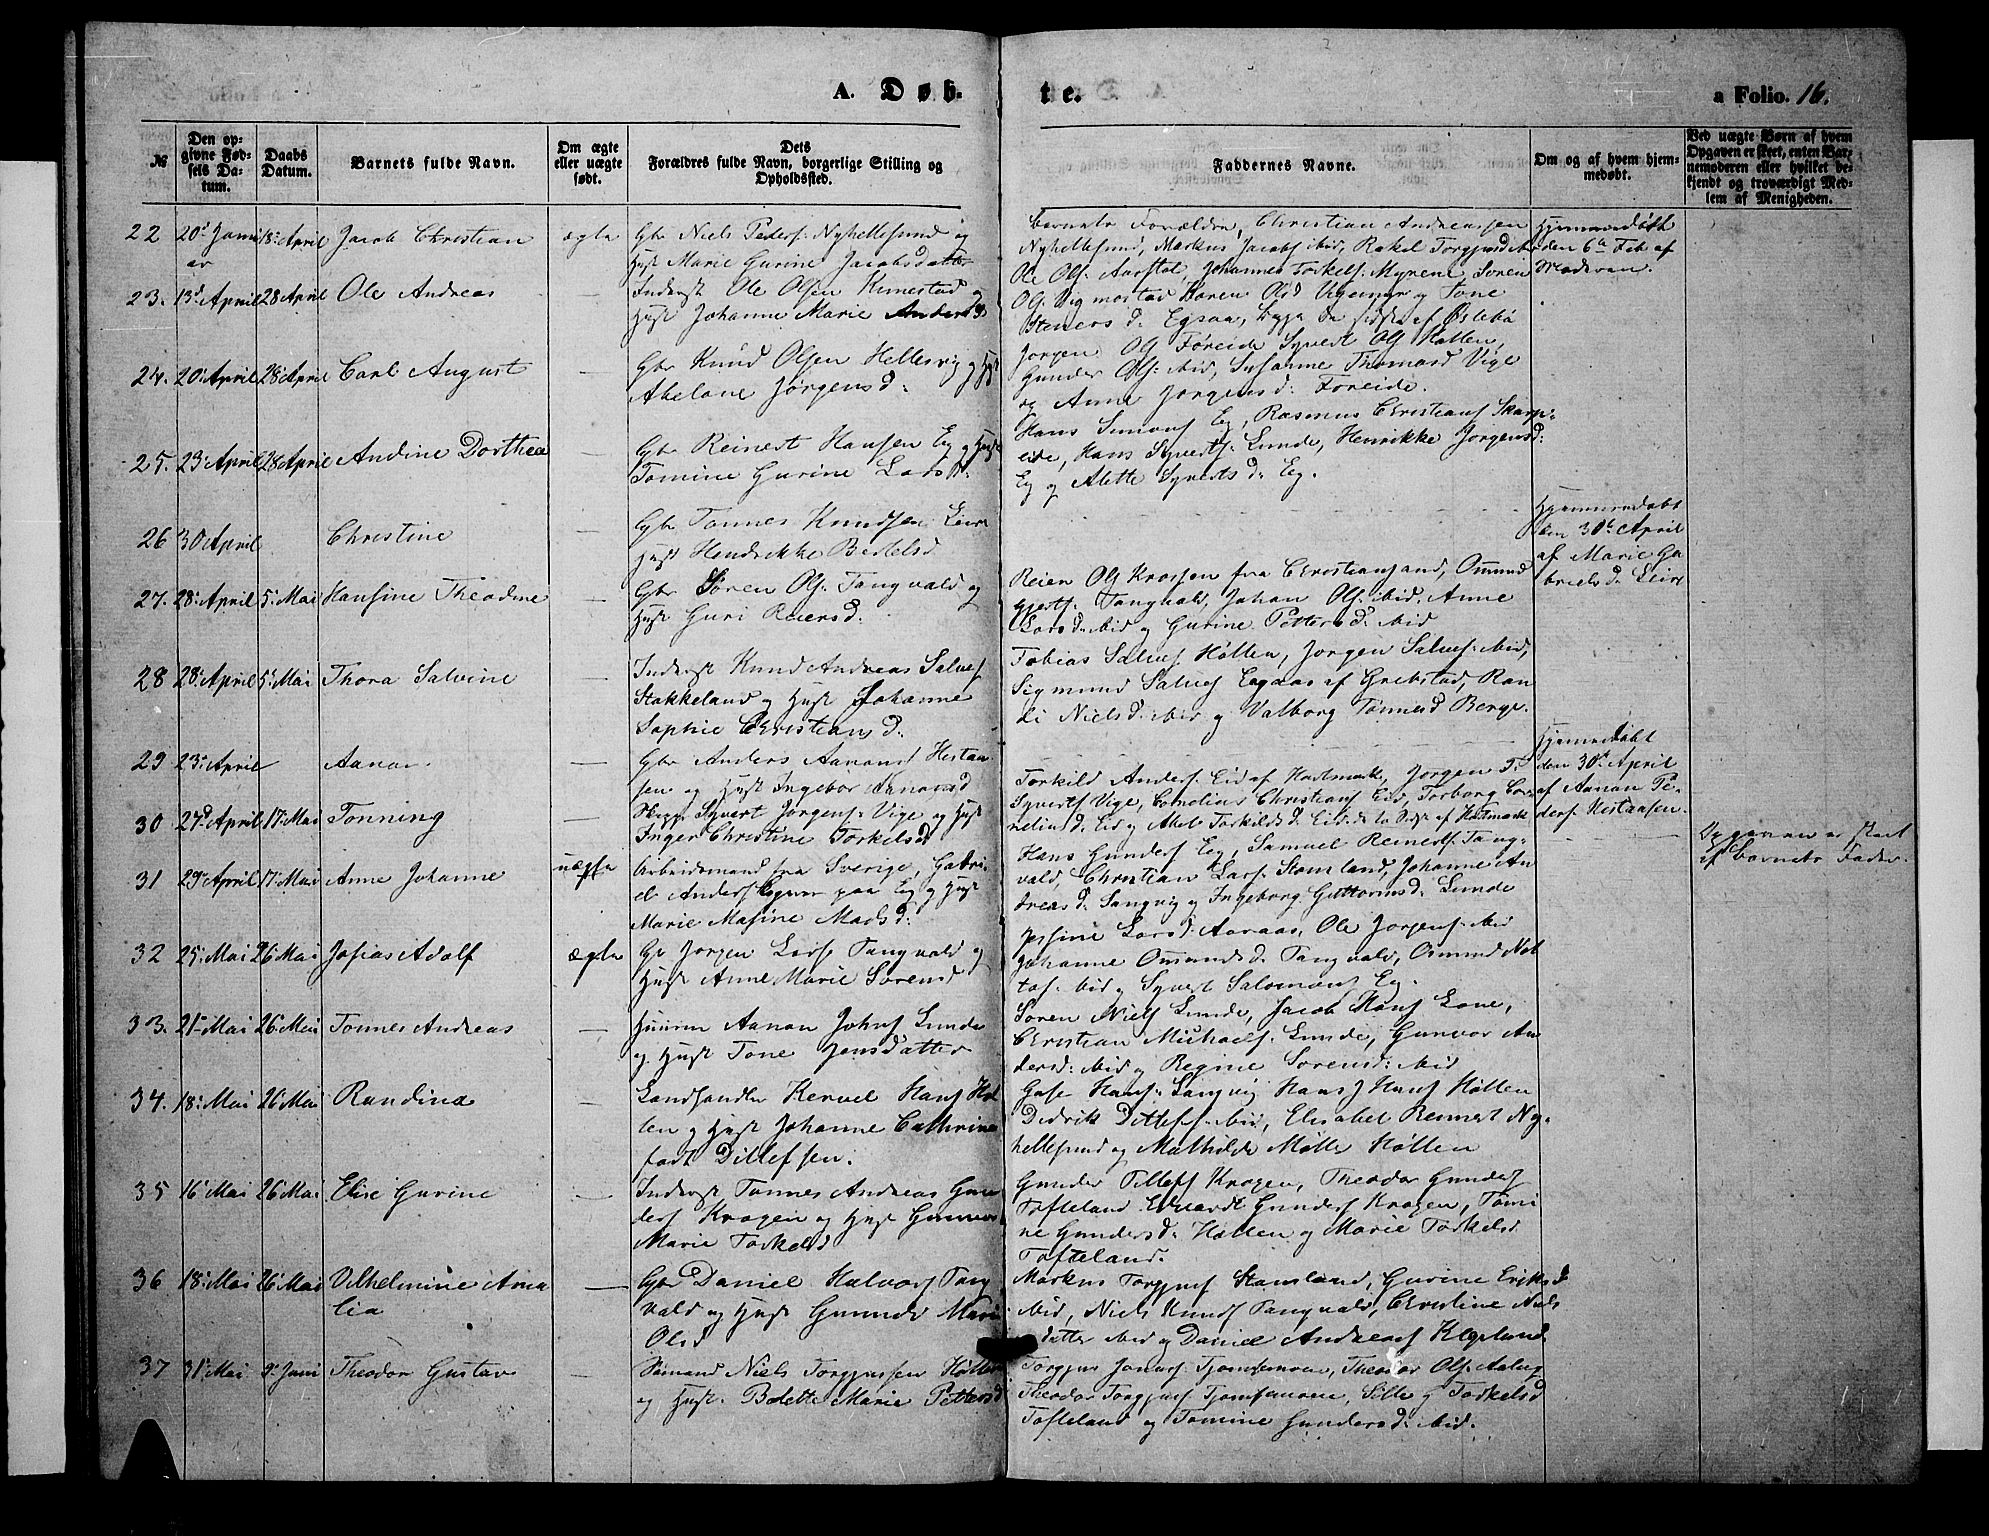 A. Døb-
te.
a Folio. 16.
№
Den op-
givne Fød-
sels Da-
tum.
Daabs
Datum.
Barnets fulde Navn.
Om ægte
eller uægte
født.
Dets
Forældres fulde Navn, borgerlige Stilling og
Opholdssted.
Faddernes Navne.
Om og af hvem hjem-
medøbt.
Ved uægte Børn af hvem
Opgaven er skeet, enten Bar-
nemoderen eller hvilket be-
kjendt og troværdigt Med-
lem af Menigheden.
22 20d Janu 18. April Jacob Christian ægte Gbr Niels Peders. Nyhellesund og
ar Hust Marie Gurine Jacobsdatter
Barnets Forældre, Christian Andreassen
Nyhellesund, Markus Jacobs. ibid, Rakel Torgjusd ibid
Hjemmedøbt
den 6te Feb af
Moderen.
23. 13d April 28 April Ole Andreas — Inderst Ole Olsen Kimestad og
Hust Johanne Marie Andersd
Ole Ols. Aarstøl, Johannes Torkels. Myrene, Søren
Ols. Vigmostad, Karen Olsd Vigemyr og Tone
Steners d. Egsaa, begge de sidste af Øslebø
24. 20. April 28 April Carl August — Gbr Knud Olsen Hellesvig og Hust
Abelone Jørgens d.
Jørgen Ols Føreide, Syvert Ols Høllen,
Gunder Ols. ibid, Susanne Thomasd Vige
og Anne Jørgens d. Føreide.
25. 23 April 28 April Andine Dorthea — Gbr Reinert Hansen Eg og Hust
Tomine Gurine Lars d.
Hans Simons Eg, Rasmus Christians Skarp-
eide, Hans Syverts. Lunde, Henrikke Jørgensd.
Eg og Alette Syverts d. Eg.
26 30 April Christine — Gbr Tønnes Knudsen Leire
Hust Hendrikke Bertelsd
Hjemmedøbt
den 30te April
af Marie Ga
briels d. Leire
27. 28. April 5. Mai Hansine Theodine — Gbr Søren Ols. Tangvald og
Hust Guri Reiersd.
Reier Ols Krossen fra Christiansand, Omund
Gjerts. Tangvald, Johan Ols. ibid, Anne
Lars d. ibid og Gurine Petters d. ibid
28 28. April 5. Mai Thora Salvine — Inderst Knud Andreas Salves
Stokkeland og Hust Johanne
Sophie Christians d.
Tobias Salves. Høllen, Jørgen Salves. ibid,
Sigmund Salves Egaas af Grebstad, Ran
di Niels d. ibid og Valborg Tønnesd Berge.
29 23. April Aanon — Gbr Anders Aanons Hestaa-
sen og Hust Ingebor Aanonsd
Hjemmedøbt
den 30te April
af Aanon Pe-
ders. Hestaasen.
30 27d April 17. Mai Tonning — Syvert Jørgens. Vige og Hust
Inger Christine Torkelsd
Torkild Anders. Eid af Holtmark, Jørgen
Syverts Vige, Cornelius Christians Eid, Torborg Cor-
nelius d. Eid
31 29. April 17. Mai Anne Johanne uægte Arbeidsmand fra Sverige, Gabri-
el Anders paa Eg og Hust
Marie Masine Mads d.
Hans Gunders Eg, Samuel Reinerts. Tang-
vald, Christian Lars. Stamland, Johanne An
dreas d. Langvig og Ingeborg Guttorms d. Lunde
Opgaven er skeet
af Barnets Fader.
32 25. Mai 26 Mai Josias Adolf ægte Gbr Jørgen Lars. Tangvald og
Hust Anne Marie Sørensd
Josine Lars d. Aaraas, Ole Jørgens. ibid
Johanne Omunds d. Tangvald, Osmund Not
tos. ibid og Syvert Salomons Eg.
33. 21. Mai 26 Mai Tønnes Andreas — Huusm Aanon Johns Lunde
og Hust Tone Jensdatter
Søren Niels Lunde, Jacob Hans Lone,
Christian Michaels. Lunde, Gunvor An
dersd. ibid og Regine Sørensd. ibid
34. 18. Mai 26 Mai Randine — Landhandler Kervel Hans Høl
len og Hust Johanne Cathrine
født Ditlefsen.
Hans. Langvig Hans J Hans Høllen
Didrik Ditlefs. ibid, Elisabet Reinert Ny-
hellesund og Mathilde Møller Høllen
35 16 Mai 26 Mai Elise Gurine — Inderst Tønnes Andreas Gun
ders Kragen og Hust Gunvor
Marie Torkelsd
Gunder Tellefs Kragen, Theodor Gunders
Tofteland, Edvardt Gunders Kragen, Tomi
ne Gunders d. Høllen og Marie Torkelsd
Tofteland.
36 18. Mai 26 Mai Vilhelmine Ama — Gbr Daniel Halvors Tang
lia vald og Hust Gunnild Marie
Olsd
Markus Torgjus Stamland, Gurine Eriksd
ibid, Niels Knuds Tangvald, Christine Niels
datter ibid og Daniel Andreas
37 31. Mai 9. Juni Theodor Gustav — Sømand Niels Torgjussen Høllen
og Hust. Bolette Marie Pettersd
Torgjus Jonas. Tjomsmoen, Theodor Ols.
Theodor Torgjus Tjomsmoen, Torkelsd
Tofteland og Tomine Gunders d. ibid.